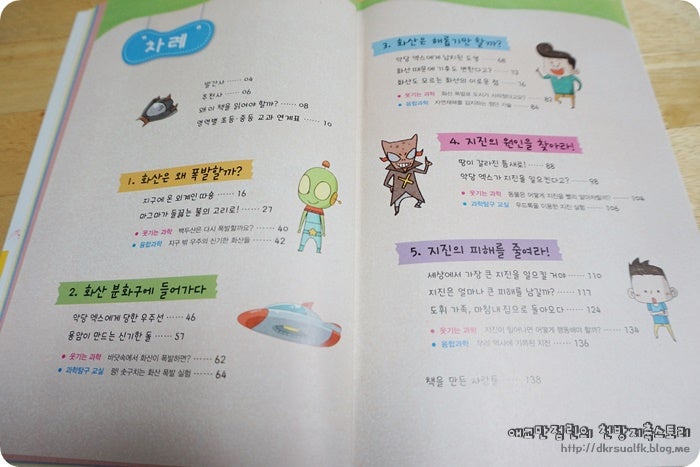 차례
발간사 …… 04
추천사 …… 06
왜 이 책을 읽어야 할까? …… 08
영역별 초등·중등 교과 연계표 …… 10
1. 화산은 왜 폭발할까?
지구에 온 외계인 따숑 …… 16
마그마가 들끓는 불의 고리로! …… 27
웃기는 과학 백두산은 다시 폭발할까요? …… 40
융합과학 지구 밖 우주의 신기한 화산들 …… 42
2. 화산 분화구에 들어가다
악당 엑스에게 당한 우주선 …… 46
용암이 만드는 신기한 돌 …… 57
웃기는 과학 바닷속에서 화산이 폭발하면? …… 62
과학탐구 교실 펑! 솟구치는 화산 폭발 실험 …… 64
3. 화산은 해롭기만 할까?
악당 엑스에게 납치된 도형 …… 68
화산 때문에 기후도 변한다고? …… 72
화산도 모르는 화산의 이로운 점 …… 76
웃기는 과학 화산 폭발로 도시가 사라졌다고요? …… 82
융합과학 자연재해를 감지하는 첨단 기술 …… 84
4. 지진의 원인을 찾아라!
땅이 갈라진 틈새로! …… 88
악당 엑스가 지진을 일으킨다고? …… 98
웃기는 과학 동물은 어떻게 지진을 빨리 알아차릴까? …… 104
과학탐구 교실 우드록을 이용한 지진 실험 …… 106
5. 지진의 피해를 줄여라!
세상에서 가장 큰 지진을 일으킬 거야 …… 110
지진은 얼마나 큰 피해를 남길까? …… 117
도휘 가족, 마침내 집으로 돌아오다 …… 124
웃기는 과학 지진이 일어나면 어떻게 행동해야 할까? …… 134
융합과학 우리 역사에 기록된 지진 …… 136
책을 만든 사람들 …… 138
애교만점린의 천방지축스토리
http://dkrsualfk.blog.me